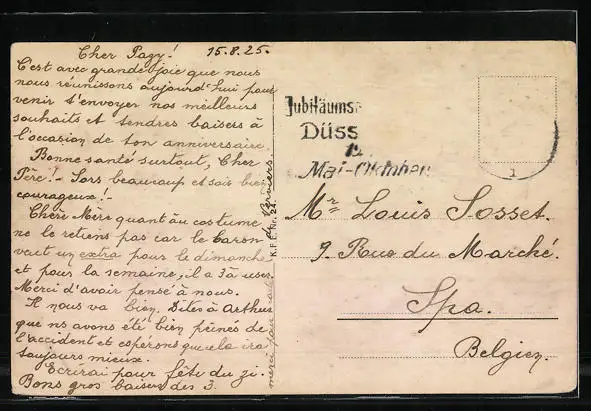 Cher Papy!
15.8.25.
C'est avec grande joie que nous
nous réunissons aujourd'hui pour
venir t'envoyer nos meilleurs
souhaits et tendres baisers à
l'occasion de ton anniversaire.
Bonne santé surtout, Cher
Père! - Sors beaucoup et sois bien
courageux! -
Chère Mère quant au costume
ne le retiens pas car le Baron
veut un extra pour le dimanche
et pour la semaine, il a 3 à user.
Merci d'avoir pensé à nous.
Il nous va bien. Dites à Arthur
que ns avons été bien peinés de
l'accident et espérons que cela ira
toujours mieux.
Ecrirai pour fête du 31.
Bons gros baisers des 3.
merci pour
K.F.E. Nr.
Jubiläums
Düss
Mai-Oktober
1
Mr Louis Sosset.
9. Rue du Marché.
Spa.
Belgien.